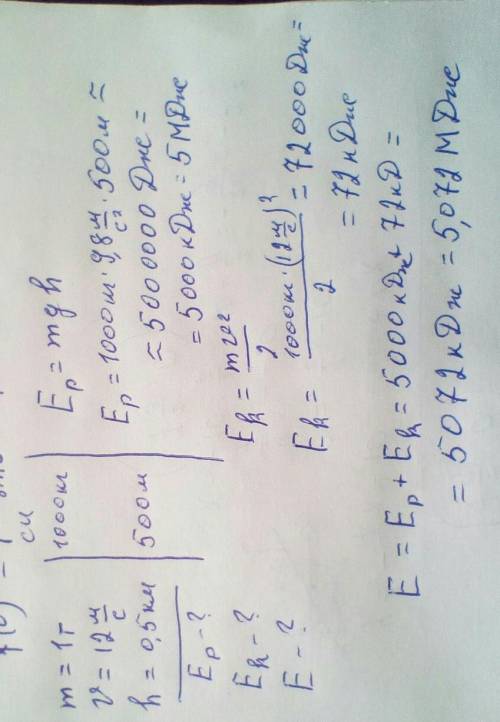 си
m = 1т
v = 12 м/с
h = 0,5 км
Ep - ?
Ek - ?
E - ?
1000 кг
500 м
Ep = mgh
Ep = 1000 кг · 9,8 м/с² · 500 м ≈
≈ 5000000 Дж =
= 5000 кДж = 5 МДж
Ek = mv²/2
Ek = 1000 кг · (12 м/с)²/2 = 72000 Дж =
= 72 кДж
E = Ep + Ek = 5000 кДж + 72 кД =
= 5072 кДж = 5,072 МДж